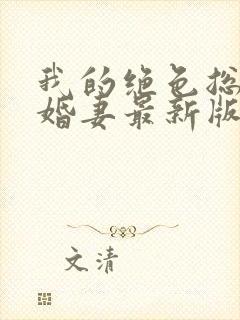 我的绝色总
婚妻最新版
文清